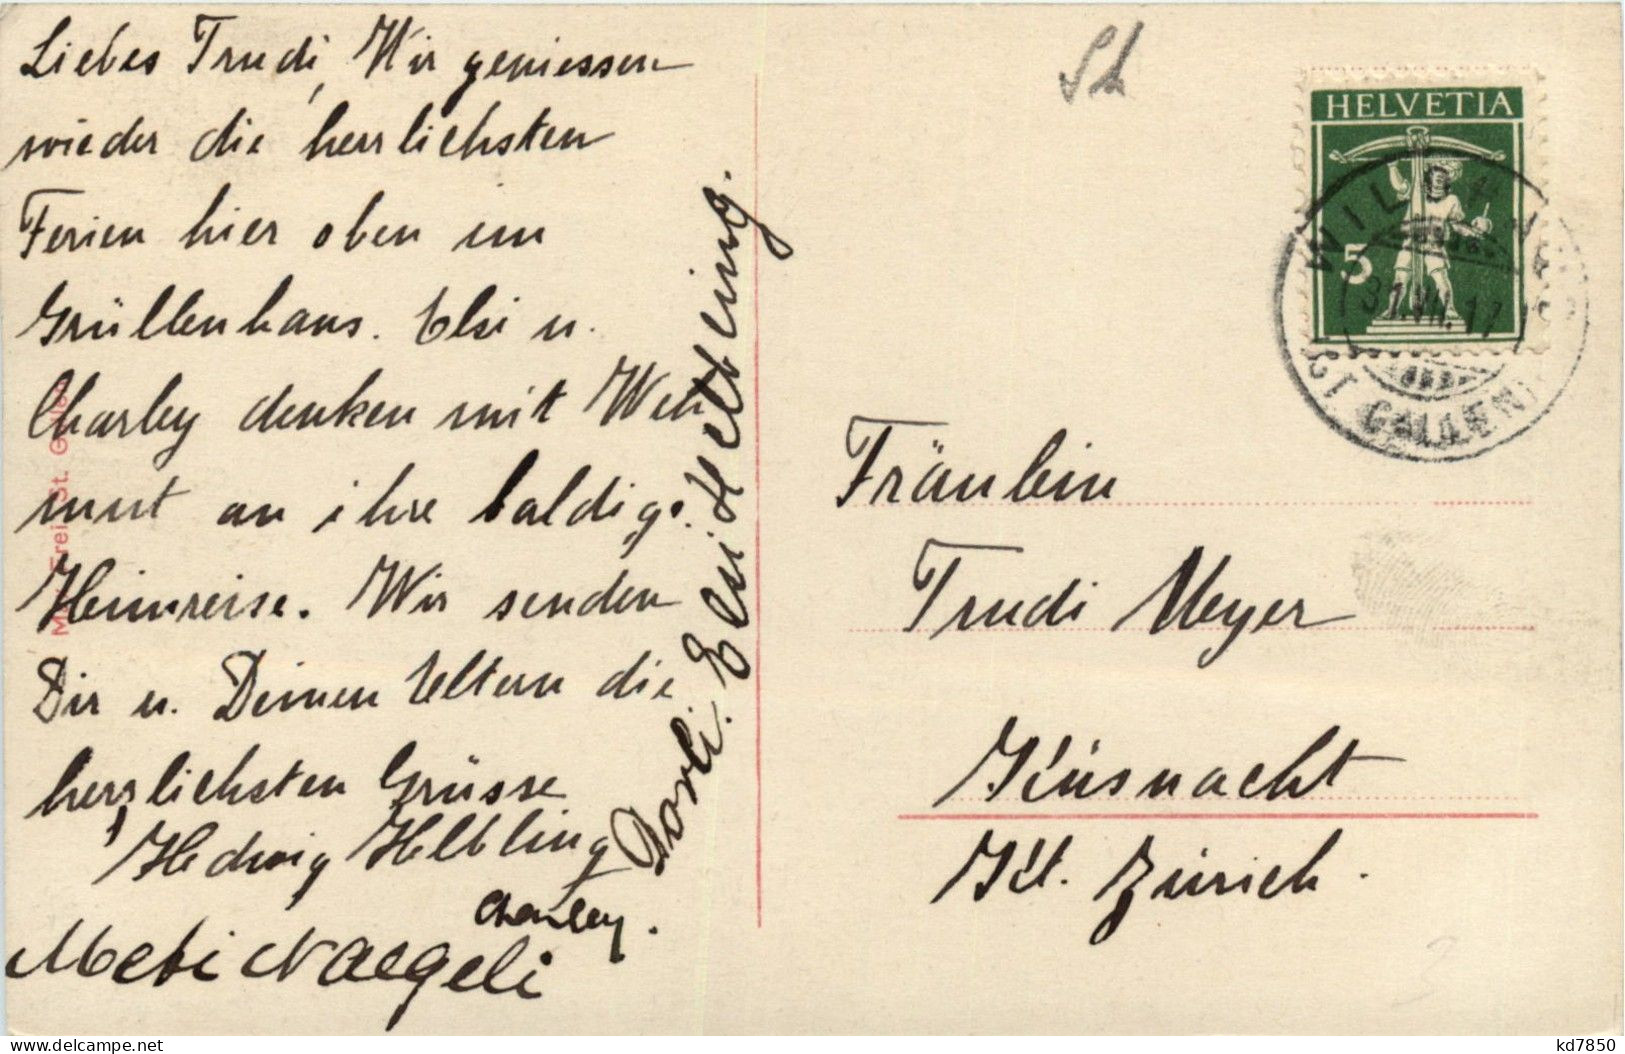 Liebes Trudi, Wir geniessen
wieder die herrlichsten
Ferien hier oben im
Grüllenhaus. Elsi u.
Charley denken mit Weh
mut an ihre baldige.
Heimreise. Wir senden
Dir u. Deinen Eltern die
herzlichsten Grüsse
Hedwig Helbling
Charley.
Meti Naegeli
Dorli. Elsi Helbling.
Frei St.
Sh
HELVETIA
5
31.VII.17
ST GALLEN
Fräulein
Trudi Meyer
Küsnacht
Kt. Zürich.
3
kd7850